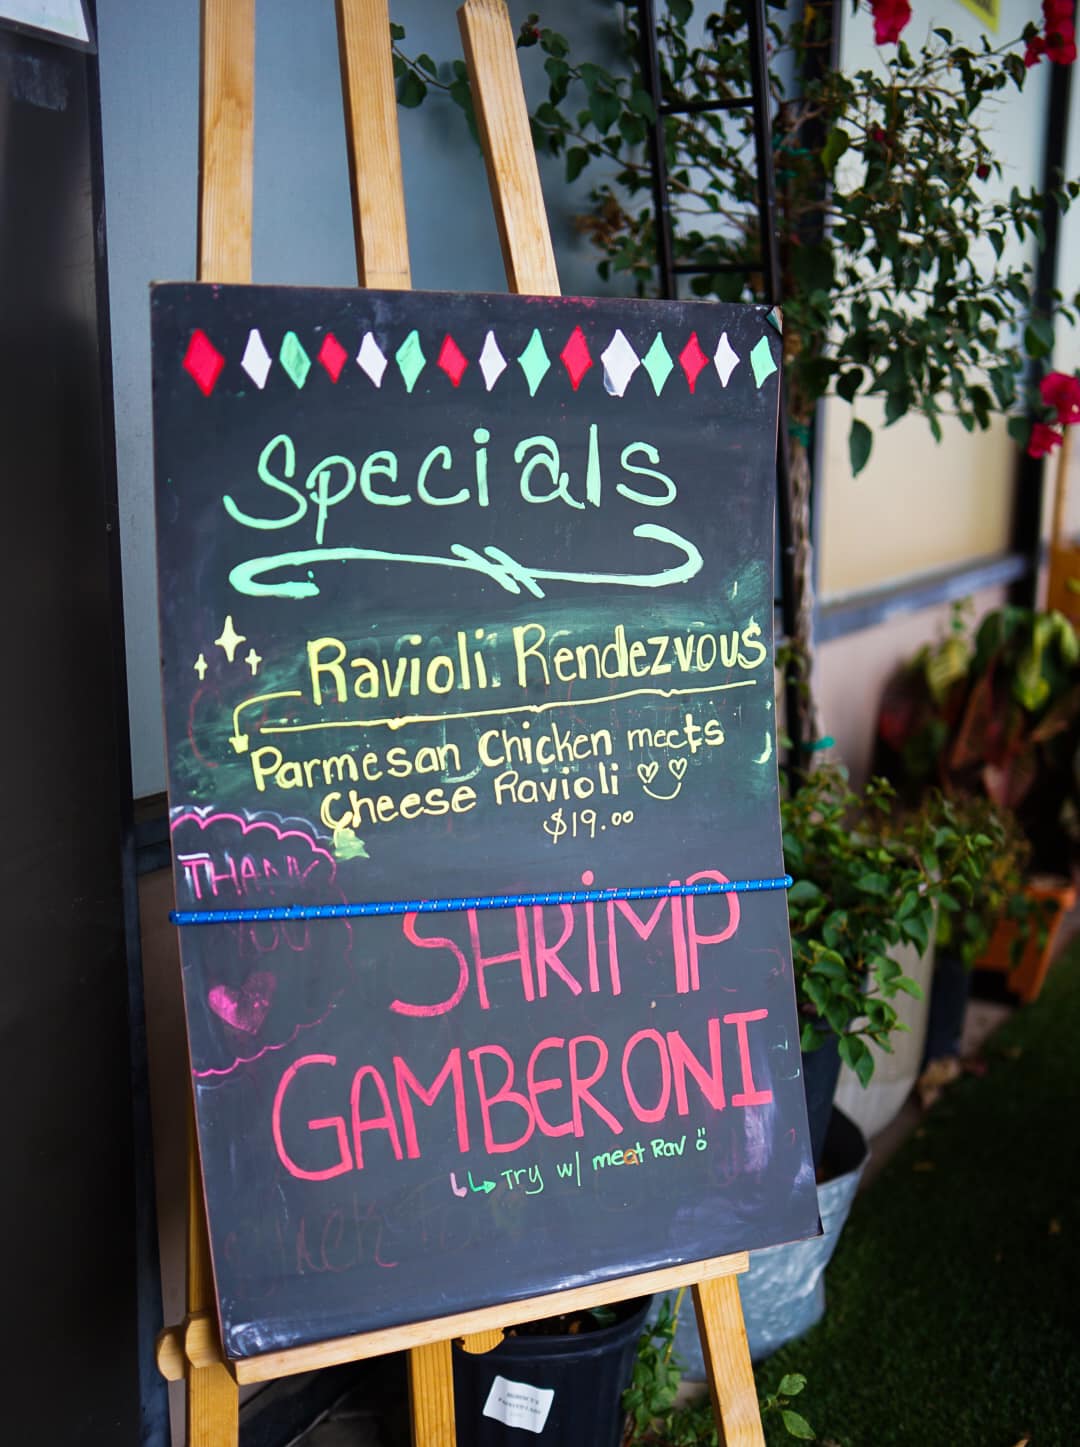 Specials
Ravioli Rendezvous
Parmesan Chicken meets
Cheese Ravioli
$19.00
THANK
YOU
SHRIMP
GAMBERONI
Try w/ meat Rav